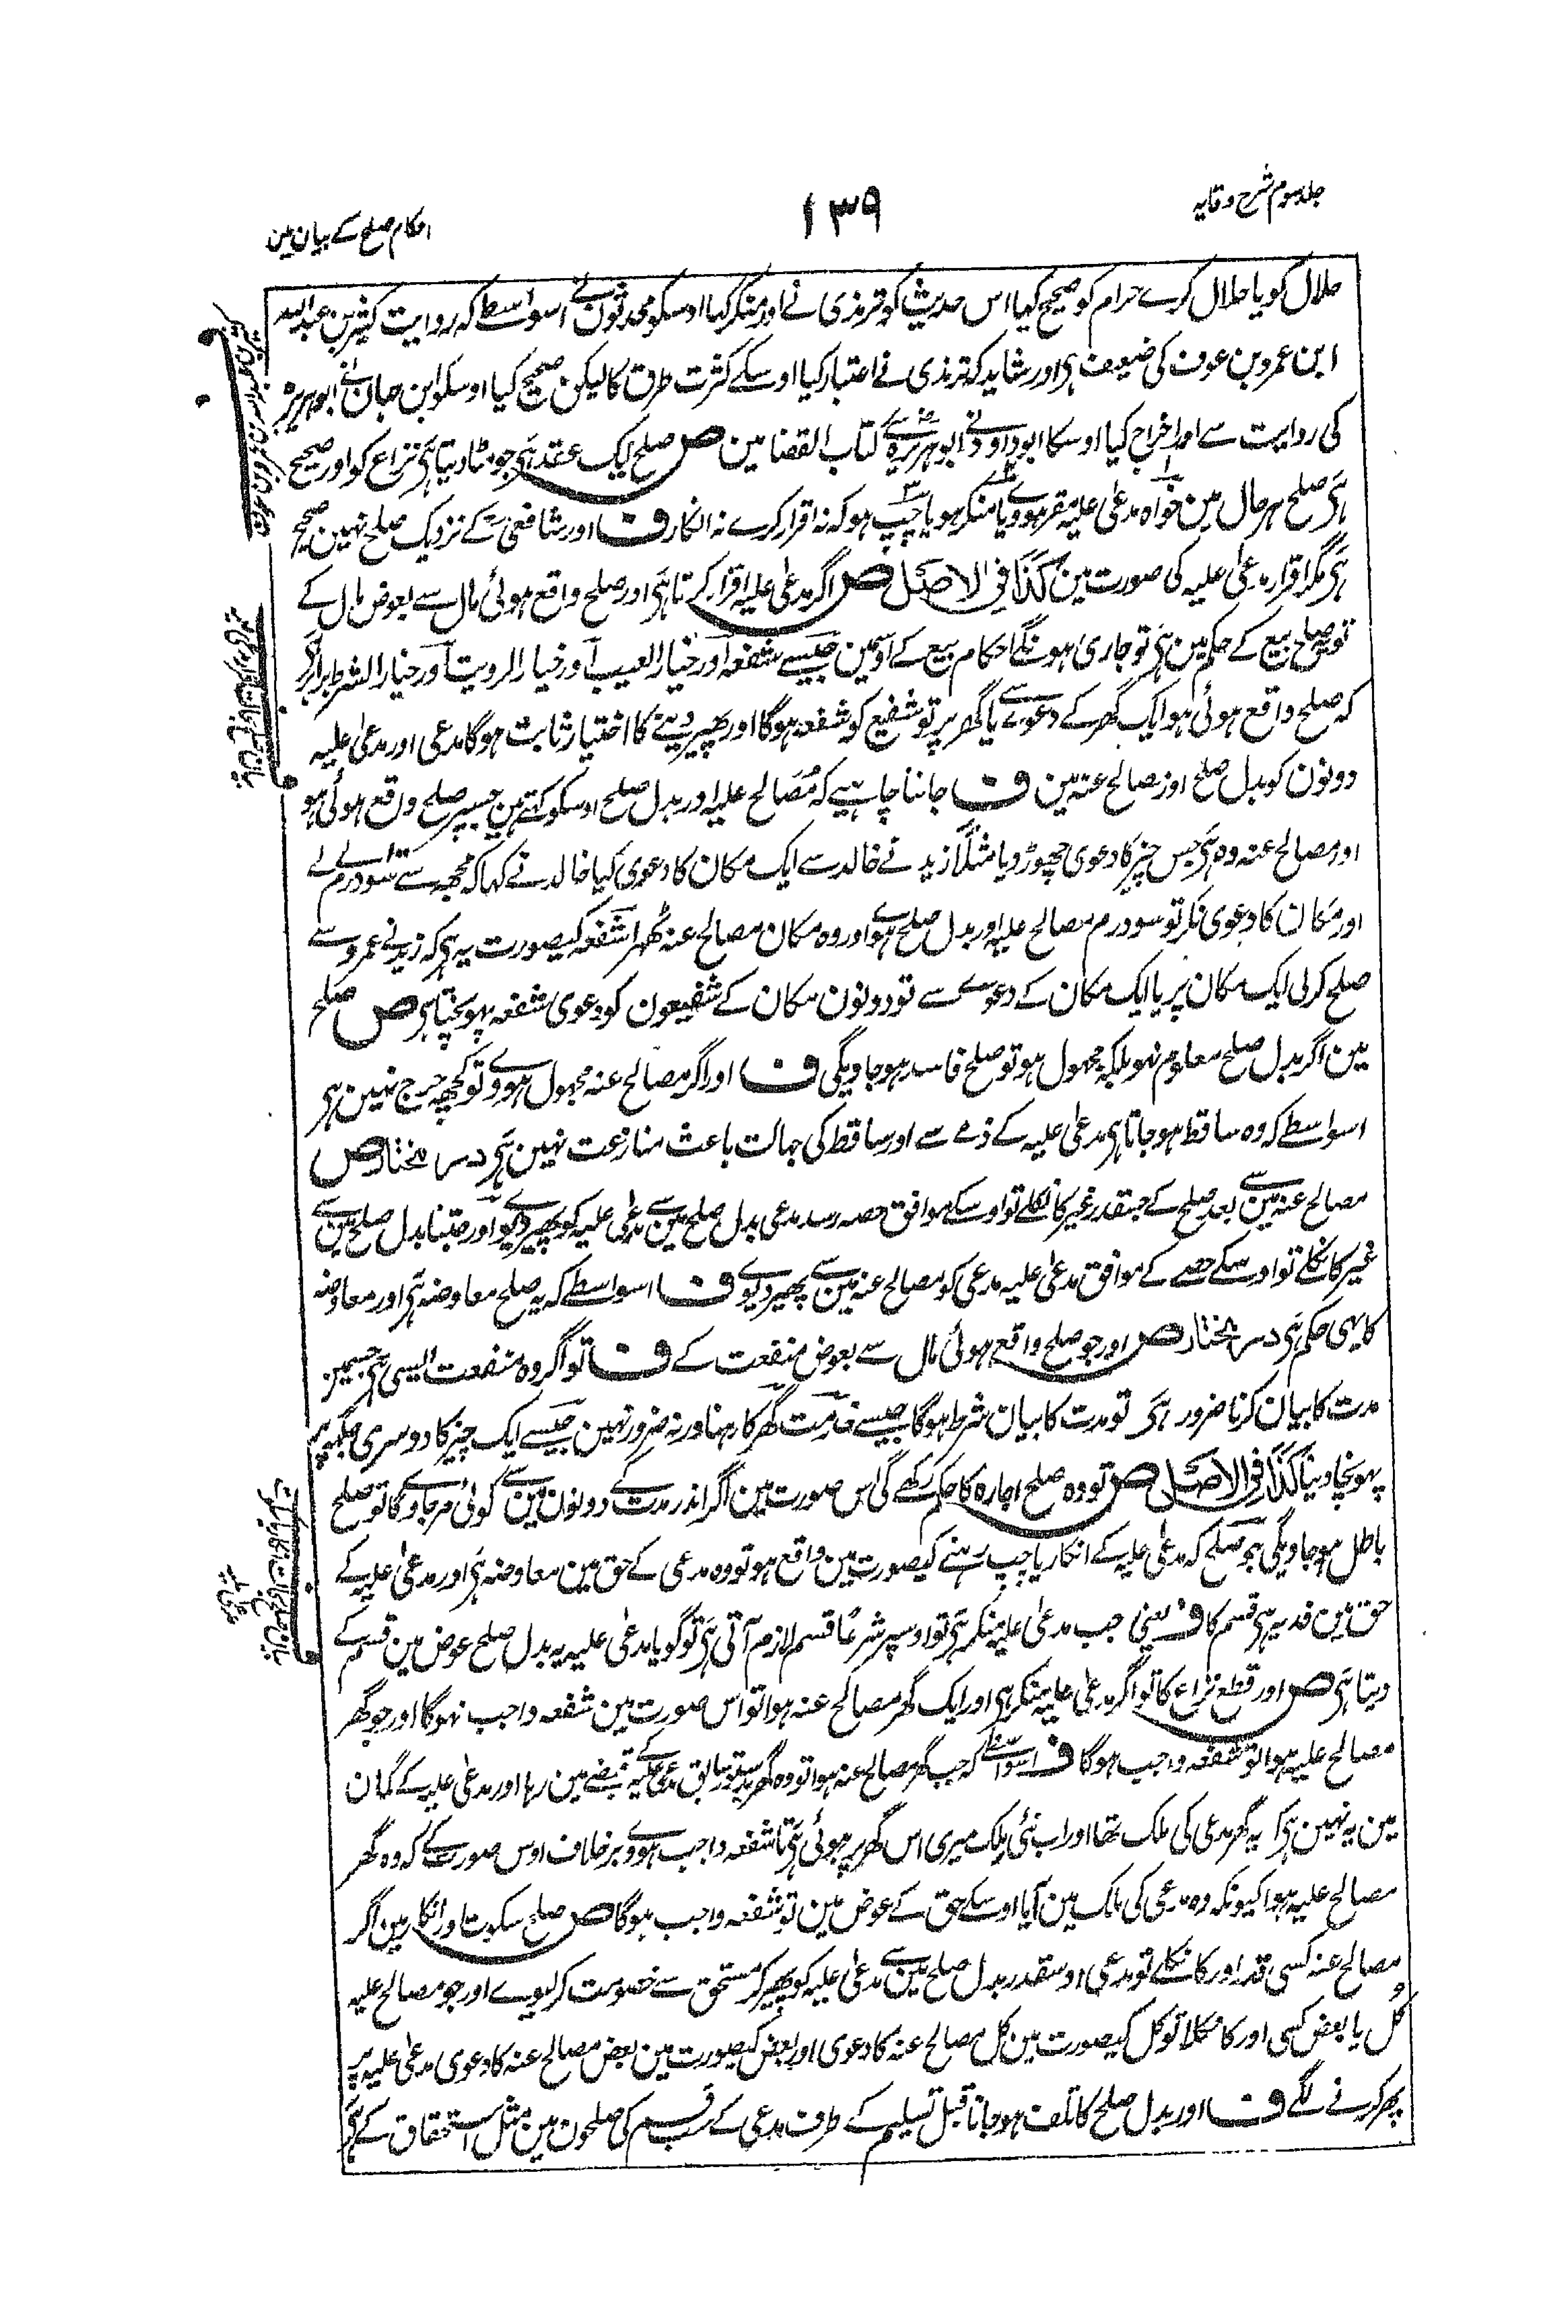 جلد سوم شرح وقایہ
۱۳۹
احکام صلح کے بیان مین
حلال کو یا حلال کرے حرام کو صحیح کہا اس حدیث کو ترمذی نے اور منکر کہا اوسکو محدثون نے اسواسطے کہ روایت کثیر بن عبد اللہ
ابن عمرو بن عوف کی ضعیف ہی اور شاید کہ ترمذی نے اعتبار کیا اوسکے کثرت طرق کا لیکن صحیح کیا اوسکو ابن حبان نے ابوہریرہ
کی روایت سے اور اخراج کیا اوسکا ابوداود نے ابوہریرہ سے کتاب القضا مین ص صلح ایک عقد ہی جو مٹا دیتا ہی نزاع کو اور صحیح
ہی صلح ہر حال مین خواہ مدعی علیہ مقر ہووے یا منکر ہو یا چپ ہو کہ نہ اقرار کرے نہ انکار ف اور شافعی کے نزدیک صلح نہین صحیح
ہی مگر اقرار مدعی علیہ کی صورت مین کذا فی الاصل ص اگر مدعی علیہ اقرار کرتا ہی اور صلح واقع ہوئی مال سے بعوض مال کے
تو یہ صلح بیع کے حکم مین ہی تو جاری ہونگے احکام بیع کے اوسمین جیسے شفعہ اور خیار العیب اور خیار الرویت اور خیار الشرط پر اگر
کہ صلح واقع ہوئی ہو ایک گھر کے دعوے سے یا گھر پر تو شفیع کو شفعہ ہوگا اور پھیر دینے کا اختیار ثابت ہوگا مدعی اور مدعی علیہ
دونون کو بدل صلح اور مصالح عنہ مین ف جاننا چاہیے کہ مصالح علیہ اور بدل صلح اوسکو کہتے ہین جسپر صلح واقع ہوئی ہو
اور مصالح عنہ وہ ہی جس چیز کا دعوی چھوڑ دیا مثلاً زید نے خالد سے ایک مکان کا دعوی کیا خالد نے کہا کہ مجھ سے سو درم لے لے
اور مکان کا دعوی نکر تو سو درم مصالح علیہ اور بدل صلح ہوے اور وہ مکان مصالح عنہ ٹھہرا شفعہ کیصورت یہ ہی کہ زید نے عمرو سے
صلح کرلی ایک مکان پر یا ایک مکان کے دعوے سے تو دونون مکان کے شفیعون کو دعوی شفعہ پہونچتا ہی ص صلح
مین اگر بدل صلح معلوم نہو بلکہ مجہول ہو تو صلح فاسد ہو جاویگی ف اور اگر مصالح عنہ مجہول ہووے تو کچھہ حرج نہین ہی
اسواسطے کہ وہ ساقط ہو جاتا ہی مدعی علیہ کے ذمے سے اور ساقط کی جہالت باعث منازعت نہین ہی در مختار ص
مصالح عنہ مین سے بعد صلح کے جسقدر غیر کا نکلے تو اوسکے موافق حصہ رسد مدعی بدل صلح مین سے مدعی علیہ کو پھیر دیوے اور جتنا بدل صلح مین سے
غیر کا نکلے تو اوسکے حصے کے موافق مدعی علیہ مدعی کو مصالح عنہ مین سے پھیر دیوے ف اسواسطے کہ یہ صلح معاوضہ ہی اور معاوضہ
کا یہی حکم ہی در مختار ص اور جو صلح واقع ہوئی مال سے بعوض منفعت کے ف تو اگر وہ منفعت ایسی ہی جسمین
مدت کا بیان کرنا ضرور ہی تو مدت کا بیان شرط ہوگا جیسے خدمت گھر کا رہنا ورنہ ضرور نہین جیسے ایک چیز کا دوسری جگہہ پر
پہونچا دینا کذا فی الاصل ص تو وہ صلح اجارہ کا حکم رکھے گی اس صورت مین اگر اندر مدت کے دونون مین سے کوئی مر جاوے گا تو صلح
باطل ہو جاویگی جو صلح کہ مدعی علیہ کے انکار یا چپ رہنے کیصورت مین واقع ہو تو وہ مدعی کے حق مین معاوضہ ہی اور مدعی علیہ کے
حق مین فدیہ ہی قسم کا ف یعنی جب مدعی علیہ منکر ہی تو اوسپر شرعاً قسم لازم آتی ہی تو گویا مدعی علیہ یہ بدل صلح عوض مین قسم کے
دیتا ہی ص اور قطع نزاع کا تو اگر مدعی علیہ منکر ہی اور ایک گھر مصالح عنہ ہوا تو اس صورت مین شفعہ واجب نہوگا اور جو گھر
مصالح علیہ ہوا تو شفعہ واجب ہوگا ف اسواسطے کہ جب گھر مصالح عنہ ہوا تو وہ گھر بدستور سابق مدعی علیہ کے قبضے مین رہا اور مدعی علیہ کے گمان
مین یہ نہین ہی کہ یہ گھر مدعی کی ملک تھا اور اب نئی ملک میری اس گھر پر ہوئی ہی تا شفعہ واجب ہووے برخلاف اوس صورت کے کہ وہ گھر
مصالح علیہ ہوا کیونکہ وہ مدعی کی ملک مین آیا اوسکے حق کے عوض مین تو شفعہ واجب ہوگا ص صلح سکوت اور انکار مین اگر
مصالح عنہ کسی قدر اور کا نکلے تو مدعی اوسقدر بدل صلح مین سے مدعی علیہ کو پھیر کر مستحق سے خصومت کر لیوے اور جو مصالح علیہ
کل یا بعض کسی اور کا نکلا تو کل کیصورت مین کل مصالح عنہ کا دعوی اور بعض کیصورت مین بعض مصالح عنہ کا دعوی مدعی علیہ پر
پھر کرنے لگے ف اور بدل صلح کا تلف ہو جانا قبل تسلیم کے طرف مدعی کے قسم کی صلحون مین مثل استحقاق کے ہی